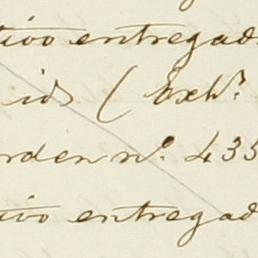 tivo entregad
ids (Exhr.
rden no. 433
tivo entregad